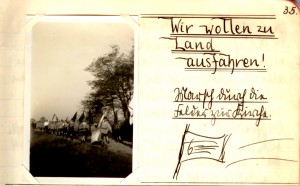 35.
Wir wollen zu
Land
ausfahren!
Marsch durch die
Felder zur Kirche.
6